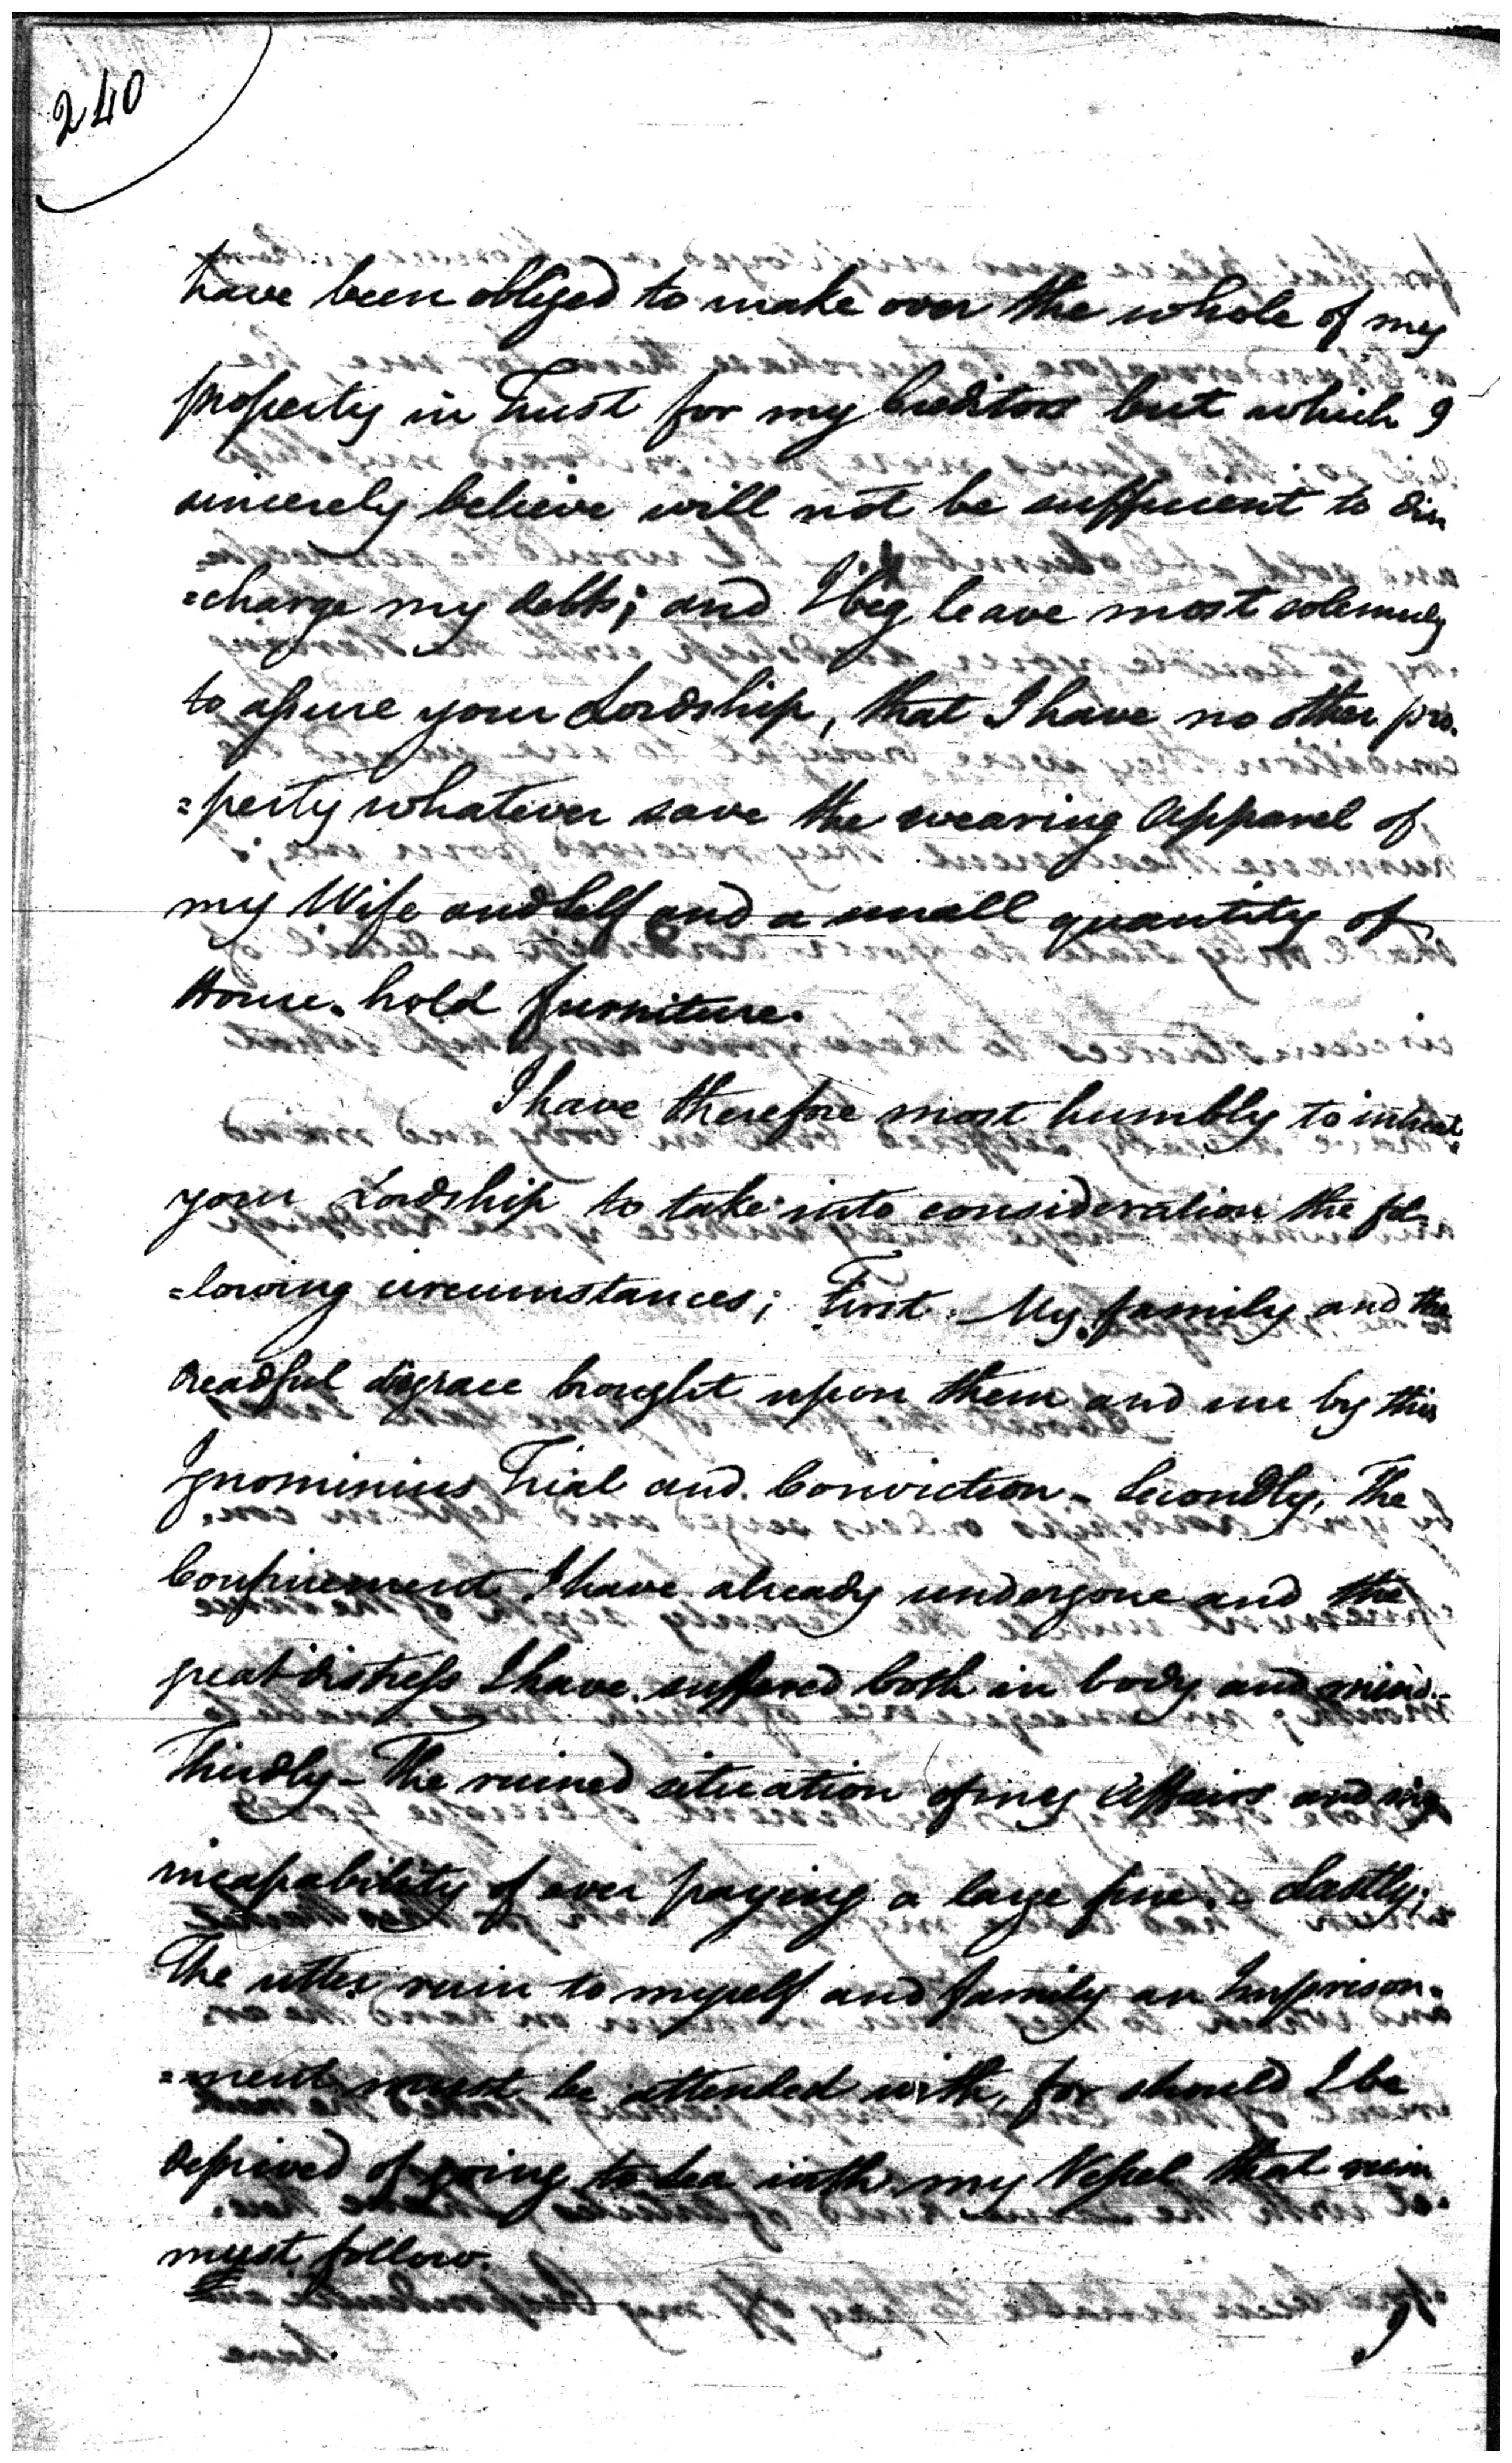 240
have been obliged to make over the whole of my
property in Trust for my Creditors but which I
sincerely believe will not be sufficient to dis
=charge my debts; and I beg leave most solemnly
to assure your Lordship, that I have no other pro.
=perty whatever save the wearing Apparel of
my Wife and Self and a small quantity of
House-hold furniture.
I have therefore most humbly to intreat
your Lordship to take into consideration the fol=
=lowing circumstances; First. My family and the
dreadful disgrace brought upon them and me by this
Ignominius Trial and Conviction - Secondly, The
Confinement I have already undergone and the
great distress I have suffered both in body and mind -
Thirdly - The ruined situation of my Affairs and my
incapability of ever paying a large fine. - Lastly;
The utter ruin to myself and family an Imprison=
=ment must be attended with, for should I be
deprived of going to Sea with my Vessel that ruin
must follow.
I